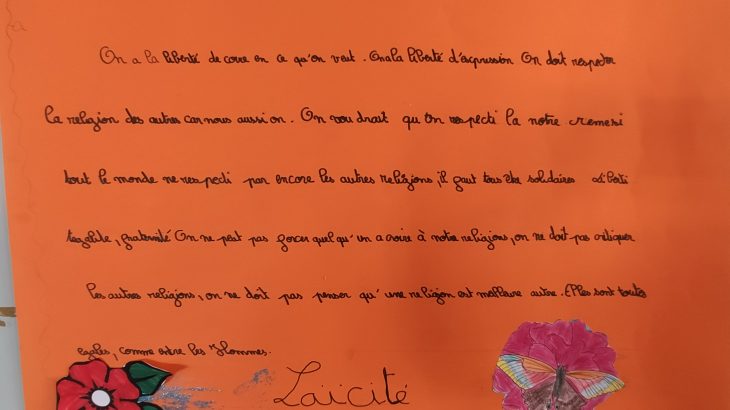 On a la liberté de coire en ce qu'on veut. On a la liberté d'expression On doit respecter
la religion des autres car nous aussi on. On voudrait qu'on respecti la notre cremesi
tout le monde ne respecti pas encore les autres religions, il faut tous être solidaires Liberti
tegalite, fraternité On ne peut pas forcer quelqu'un a croire à notre religions, on ne doit pas critiquer
les autres religions, on ne doit pas penser qu'une religion est meillaure autre. Elles sont toutes
egales, comme entre les Hommes.
Laïcité